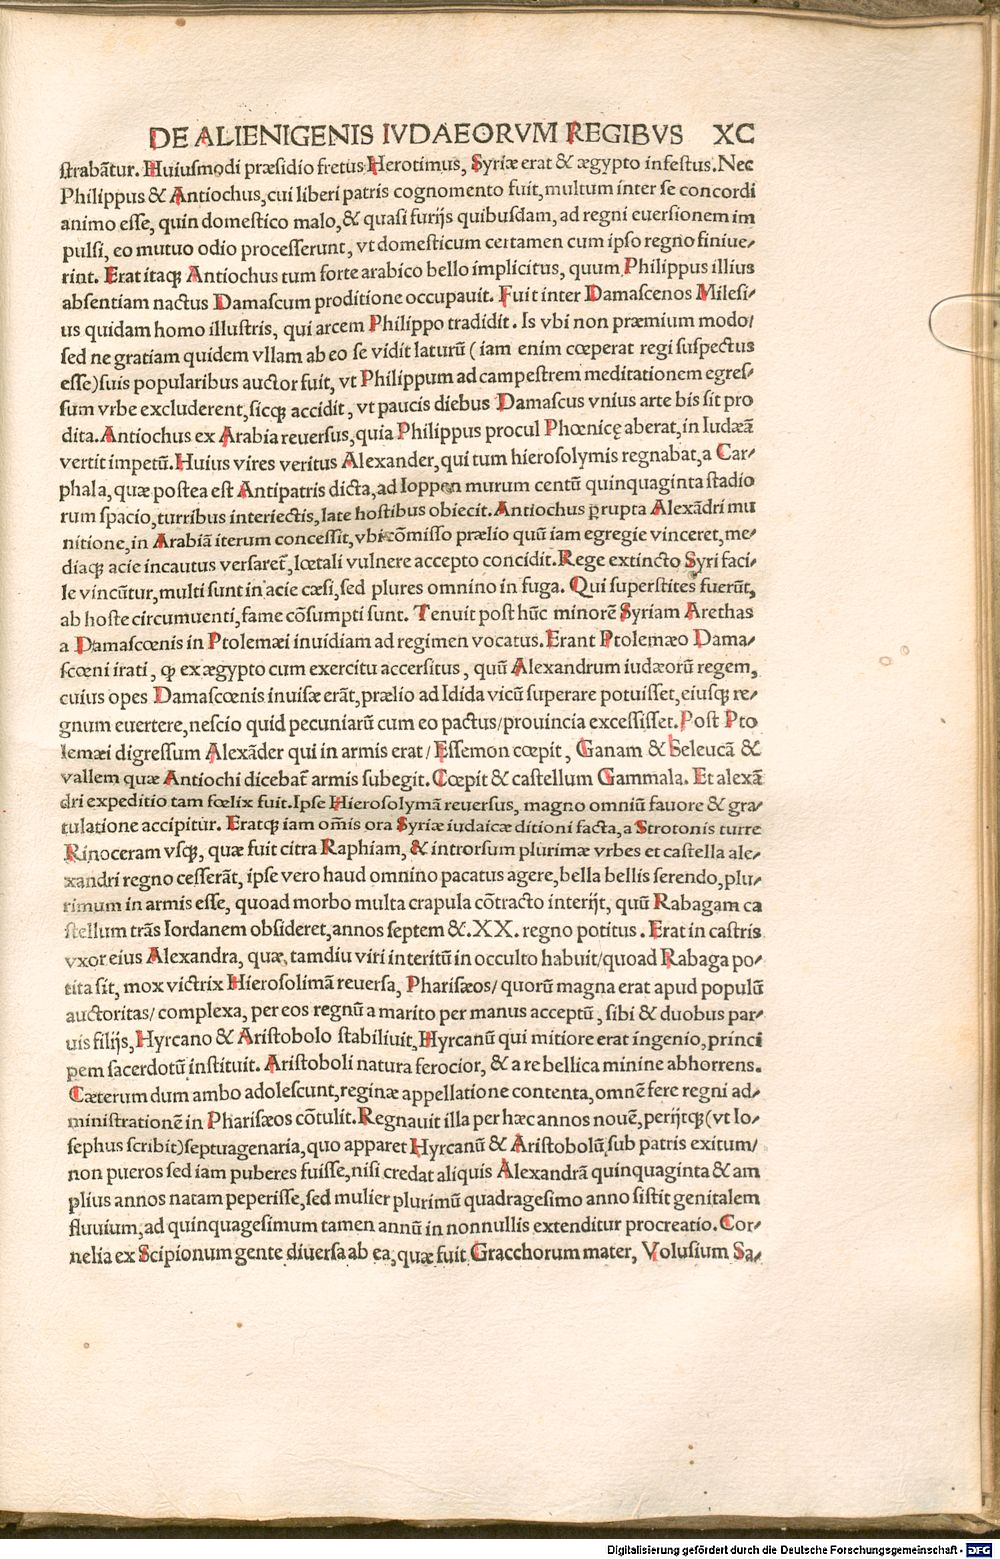 DE ALIENIGENIS IVDAEORVM REGIBVS XC
ſtrabãtur. Huiuſmodi præſidio fretus Herotimus, Syriæ erat & ægypto infeſtus. Nec
Philippus & Antiochus, cui liberi patris cognomento fuit, multum inter ſe concordi
animo eſſe, quin domeſtico malo, & quaſi furijs quibuſdam, ad regni euerſionem im
pulſi, eo mutuo odio proceſſerunt, vt domeſticum certamen cum ipſo regno finiue⸗
rint. Erat itaqꝫ Antiochus tum forte arabico bello implicitus, quum Philippus illius
abſentiam nactus Damaſcum proditione occupauit. Fuit inter Damaſcenos Mileſi⸗
us quidam homo illuſtris, qui arcem Philippo tradidit. Is vbi non præmium modo/
ſed ne gratiam quidem vllam ab eo ſe vidit laturũ (iam enim cœperat regi ſuſpectus
eſſe) ſuis popularibus auctor fuit, vt Philippum ad campeſtrem meditationem egreſ⸗
ſum vrbe excluderent, ſicqꝫ accidit, vt paucis diebus Damaſcus vnius arte bis ſit pro
dita. Antiochus ex Arabia reuerſus, quia Philippus procul Phœnicę aberat, in Iudæã
vertit impetũ. Huius vires veritus Alexander, qui tum hieroſolymis regnabat, a Car⸗
phala, quæ poſtea eſt Antipatris dicta, ad Ioppen murum centũ quinquaginta ſtadio
rum ſpacio, turribus interiectis, late hoſtibus obiecit. Antiochus ꝑrupta Alexãdri mu
nitione, in Arabiã iterum conceſſit, vbi cõmiſſo prælio quũ iam egregie vinceret, me⸗
diaqꝫ acie incautus verſaret̃, lœtali vulnere accepto concidit. Rege extincto Syri faci⸗
le vincũtur, multi ſunt in acie cæſi, ſed plures omnino in fuga. Qui ſuperſtites fuerũt,
ab hoſte circumuenti, fame cõſumpti ſunt. Tenuit poſt hũc minorẽ Syriam Arethas
a Damaſcœnis in Ptolemæi inuidiam ad regimen vocatus. Erant Ptolemæo Dama⸗
ſcœni irati, ꝙ ex ægypto cum exercitu accerſitus, quũ Alexandrum iudæorũ regem,
cuius opes Damaſcœnis inuiſæ erãt, prælio ad Idida vicũ ſuperare potuiſſet, eiuſqꝫ re⸗
gnum euertere, neſcio quid pecuniarũ cum eo pactus/prouincia exceſſiſſet. Poſt Pto
lemæi digreſſum Alexãder qui in armis erat/Eſſemon cœpit, Ganam & Seleucã &
vallem quæ Antiochi dicebat̃ armis ſubegit. Cœpit & caſtellum Gammala. Et alexã
dri expeditio tam fœlix fuit. Ipſe Hieroſolymã reuerſus, magno omniũ fauore & gra⸗
tulatione accipitur. Eratqꝫ iam om̃is ora Syriæ iudaicæ ditioni facta, a Strotonis turre
Rinoceram vſqꝫ, quæ fuit citra Raphiam, & introrſum plurimæ vrbes et caſtella ale⸗
xandri regno ceſſerãt, ipſe vero haud omnino pacatus agere, bella bellis ſerendo, plu⸗
rimum in armis eſſe, quoad morbo multa crapula cõtracto interijt, quũ Rabagam ca
ſtellum trãs Iordanem obſideret, annos ſeptem &. XX. regno potitus. Erat in caſtris
vxor eius Alexandra, quæ, tamdiu viri interitũ in occulto habuit/quoad Rabaga po⸗
tita ſit, mox victrix Hieroſolimã reuerſa, Phariſæos/ quorũ magna erat apud populũ
auctoritas/ complexa, per eos regnũ a marito per manus acceptũ, ſibi & duobus par⸗
uis filijs, Hyrcano & Ariſtobolo ſtabiliuit, Hyrcanũ qui mitiore erat ingenio, princi
pem ſacerdotũ inſtituit. Ariſtoboli natura ferocior, & a re bellica minine abhorrens.
Cæterum dum ambo adoleſcunt, reginæ appellatione contenta, omnẽ fere regni ad⸗
miniſtrationẽ in Phariſæos cõtulit. Regnauit illa per hæc annos nouẽ, perijtqꝫ (vt Io⸗
ſephus ſcribit) ſeptuagenaria, quo apparet Hyrcanũ & Ariſtobolũ ſub patris exitum/
non pueros ſed iam puberes fuiſſe, niſi credat aliquis Alexandrã quinquaginta & am
plius annos natam peperiſſe, ſed mulier plurimũ quadrageſimo anno ſiſtit genitalem
fluuium, ad quinquageſimum tamen annũ in nonnullis extenditur procreatio. Cor⸗
nelia ex Scipionum gente diuerſa ab ea, quæ fuit Gracchorum mater, Voluſium Sa⸗
Digitalisierung gefördert durch die Deutsche Forschungsgemeinschaft - DFG